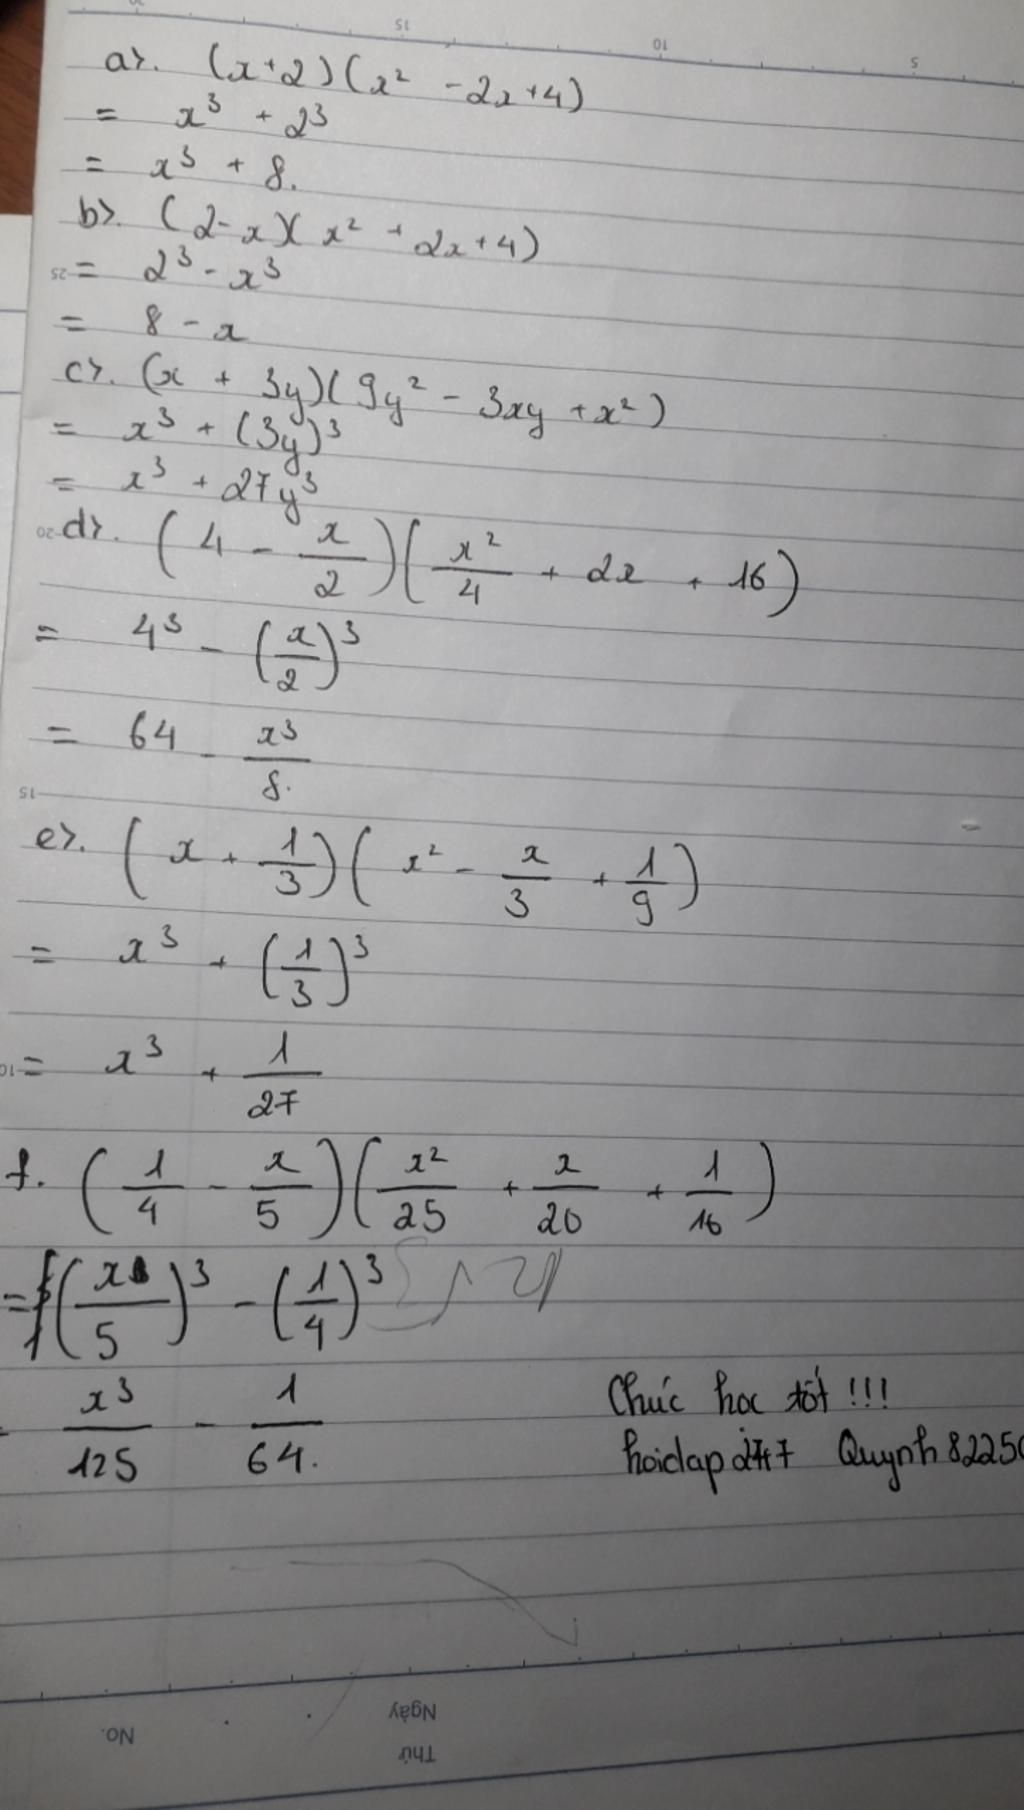 15
10
5
a). (x+2)(x² - 2x+4)
= x³ + 2³
= x³ + 8.
b). (2-x)(x² + 2x+4)
25
= 2³ - x³
= 8 - x
c). (x + 3y)(9y² - 3xy + x²)
= x³ + (3y)³
= x³ + 27y³
20
d). (4 - x/2)(x²/4 + 2x + 16)
= 4³ - (x/2)³
= 64 - x³/8.
15
e). (x + 1/3)(x² - x/3 + 1/9)
= x³ + (1/3)³
10
= x³ + 1/27
f. (1/4 - x/5)(x²/25 + x/20 + 1/16)
= (x/5)³ - (1/4)³
- x³/125 - 1/64.
Chúc học tốt !!!
hoidap247 Quynh8225
No.
Ngày
Thứ